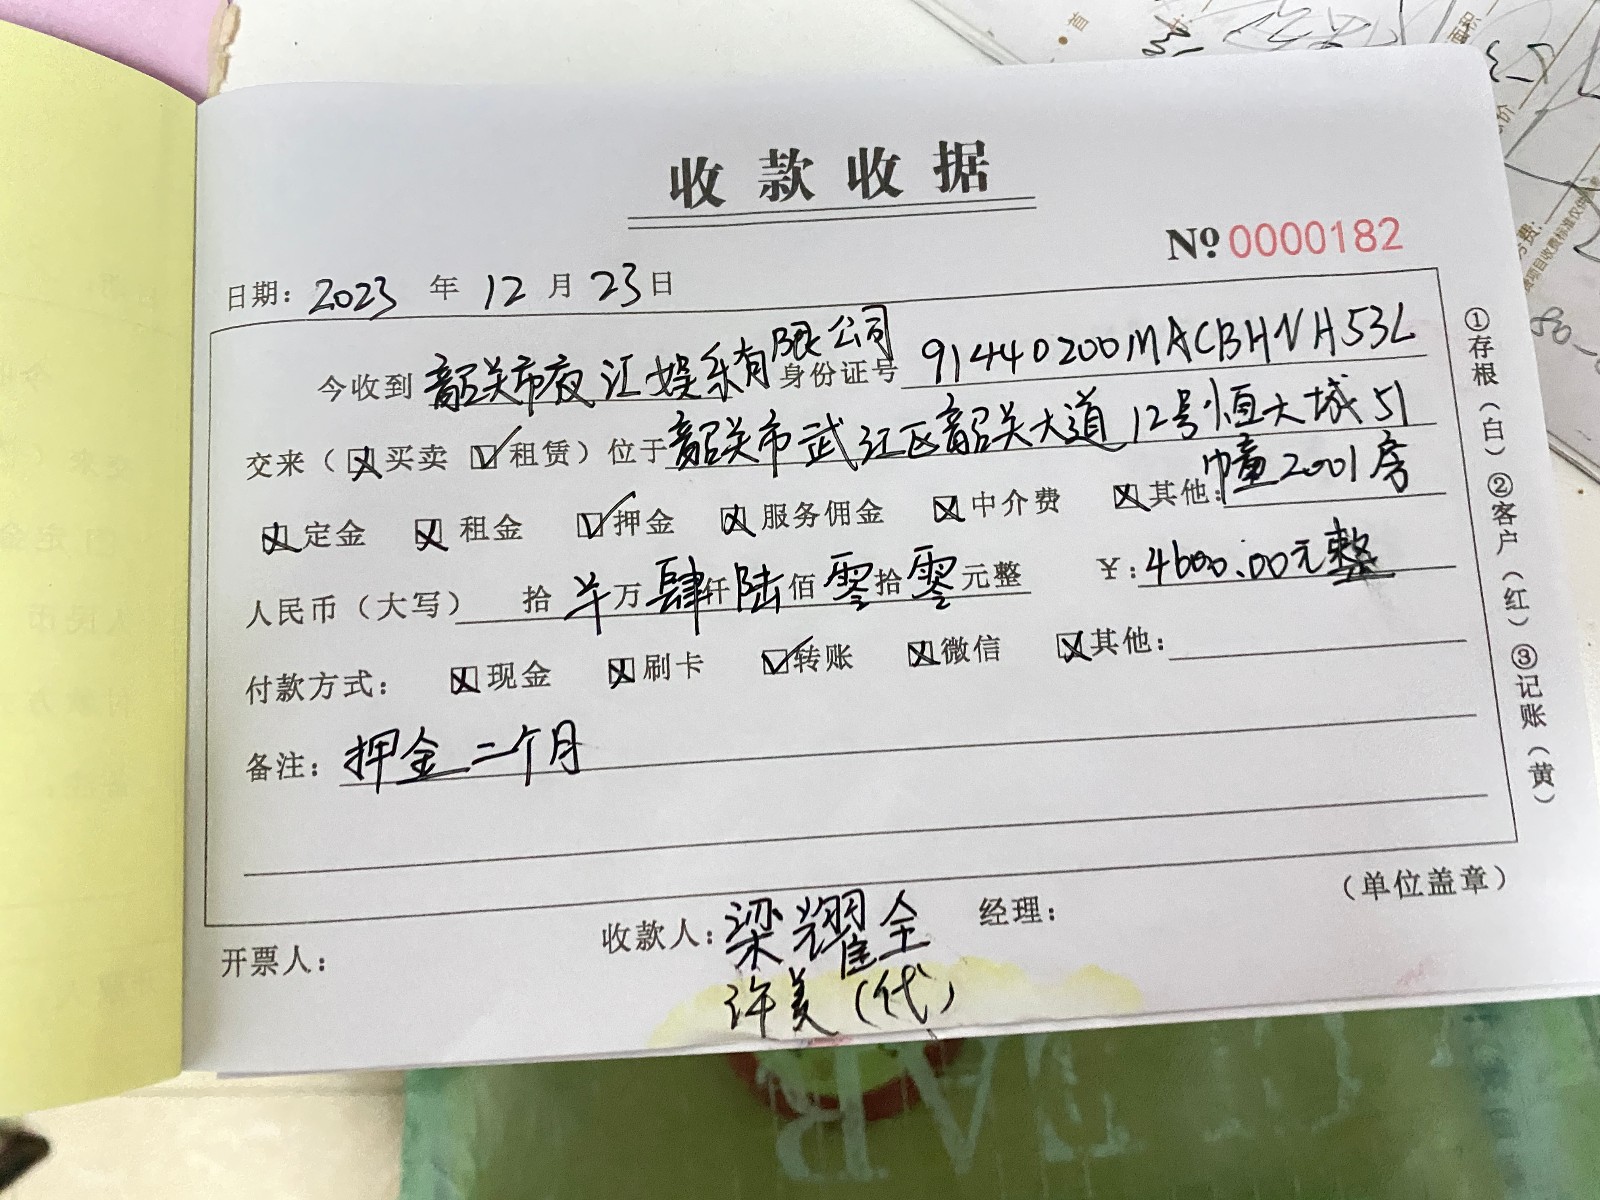 收款收据
№ 0000182
日期：2023 年 12 月 23 日
今收到 韶关市夜汇娱乐有限公司 身份证号 91440200MACBHNH53L
交来（☒买卖 ☑租赁）位于 韶关市武江区韶关大道12号恒大城51
幢2001房
☒定金 ☒租金 ☑押金 ☒服务佣金 ☒中介费 ☒其他：
人民币（大写） 拾 羊 万 肆 仟 陆 佰 零 拾 零 元整 ¥：4600.00元整
付款方式： ☒现金 ☒刷卡 ☑转账 ☒微信 ☒其他：
备注：押金二个月
（单位盖章）
开票人： 收款人：梁耀全 经理：
许美（代）
①存根（白）②客户（红）③记账（黄）